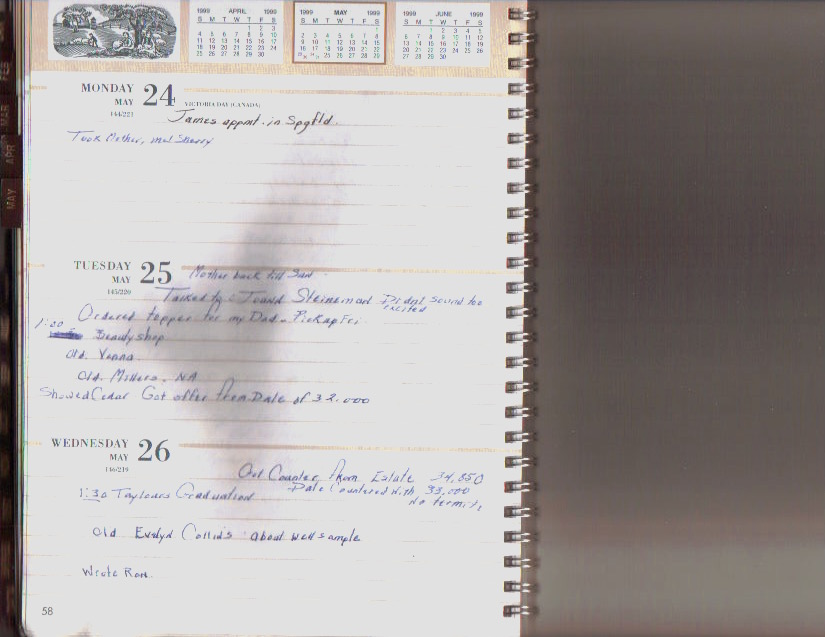 1999 APRIL 1999
S M T W T F S
1 2 3
4 5 6 7 8 9 10
11 12 13 14 15 16 17
18 19 20 21 22 23 24
25 26 27 28 29 30
1999 MAY 1999
S M T W T F S
1
2 3 4 5 6 7 8
9 10 11 12 13 14 15
16 17 18 19 20 21 22
23 30 24 31 25 26 27 28 29
1999 JUNE 1999
S M T W T F S
1 2 3 4 5
6 7 8 9 10 11 12
13 14 15 16 17 18 19
20 21 22 23 24 25 26
27 28 29 30
FEB
MAR
APR
MAY
MONDAY
MAY 24 VICTORIA DAY (CANADA)
144/221
James appmt. in Spgfld.
Took Mother, met Sherry
TUESDAY
MAY 25
145/220
Mother back till Sun
Talked to Joann Steineman Didnt sound too
excited
Ordered topper for my Dad - Pickup Fri
1:00 Beautyshop
Cld.
Cld. Millers, NA
Showed Cedar Got offer from Dale of 32,000
WEDNESDAY
MAY 26
146/219
Got Counter from Estate 34,850
Dale Countered with 33,000
No termite
1:30 Taylours Graduation
Cld Evelyn Collins about well sample
Wrote Ron
58